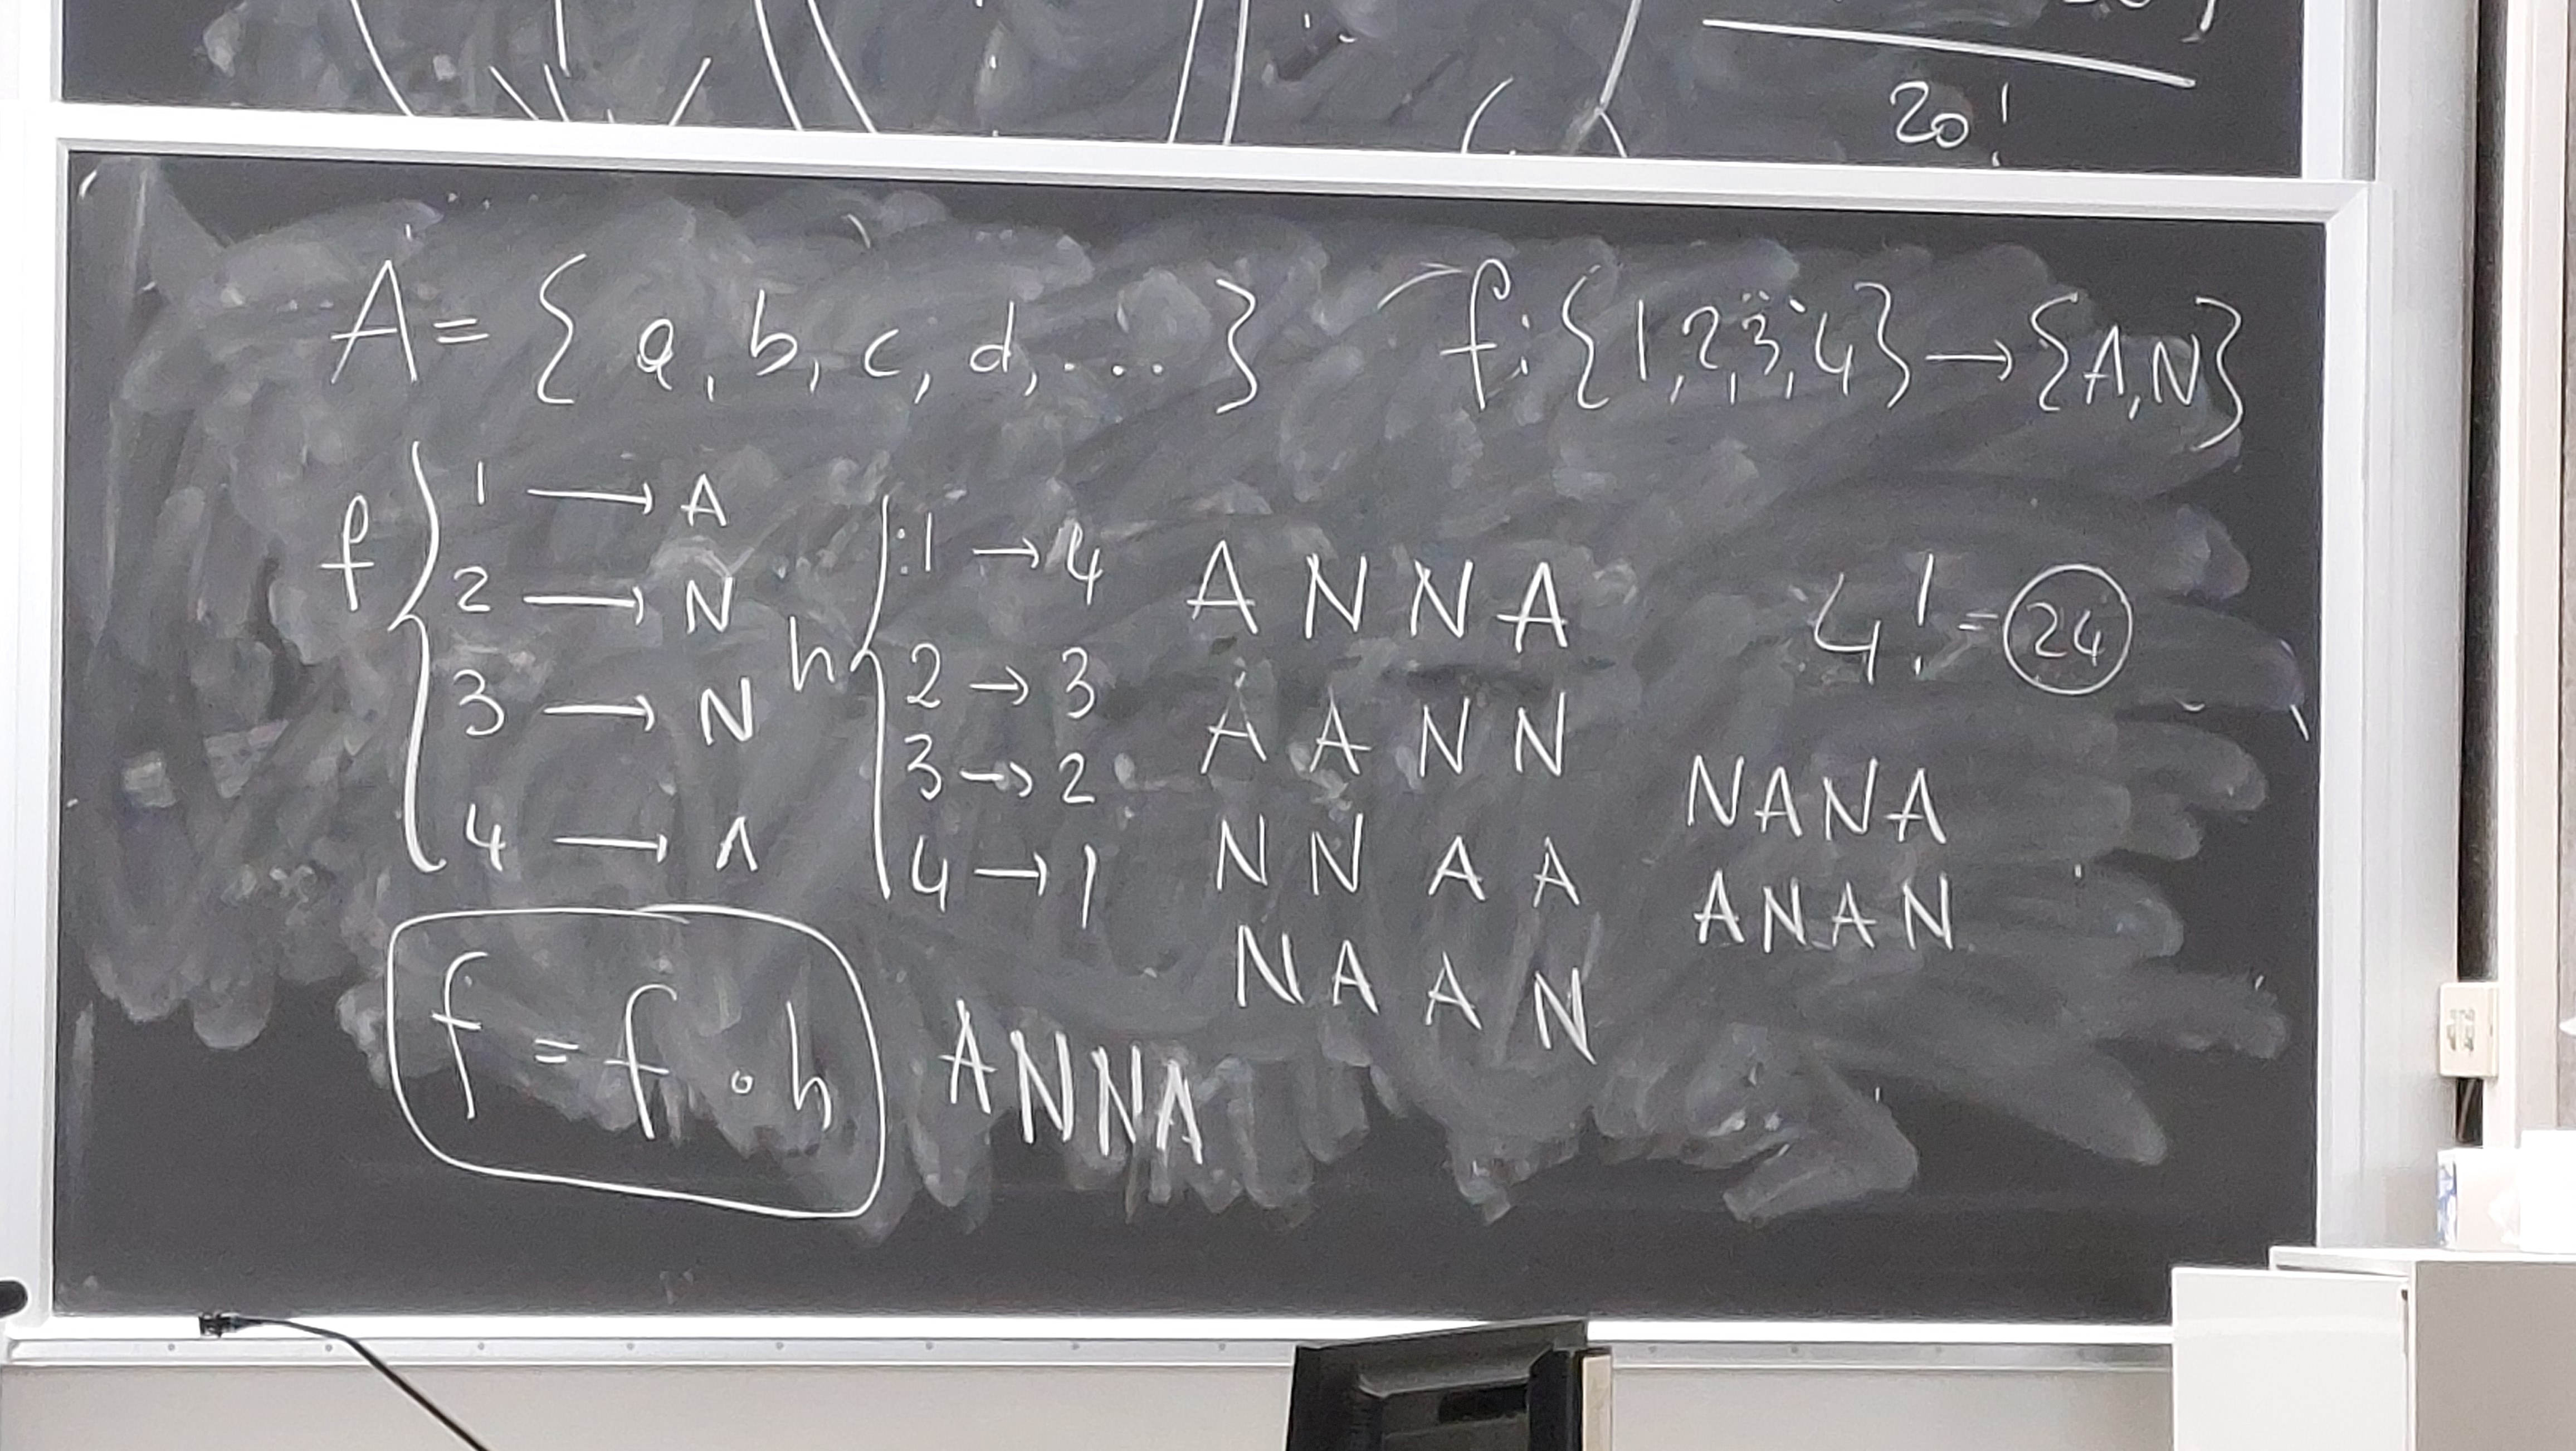 20!
A = { a, b, c, d, ... } f: {1,2,3,4} → {A,N}
f { 1 → A
2 → N
3 → N
4 → A
h { :1 → 4
2 → 3
3 → 2
4 → 1
A N N A
A A N N
N N A A
N A A N
4! = 24
NANA
ANAN
f = f ∘ h
ANNA